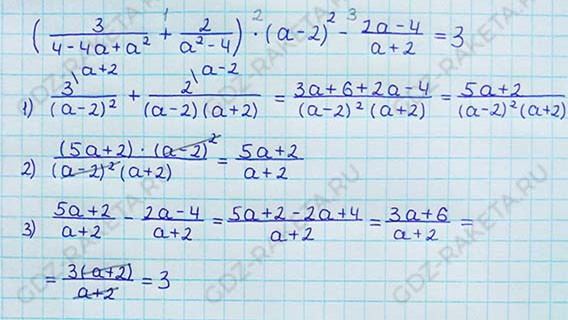 ( 3/(4-4a+a²) + 2/(a²-4) ) · (a-2)² - (2a-4)/(a+2) = 3
1 2 3
1) 3\a+2/(a-2)² + 2\a-2/((a-2)(a+2)) = (3a+6+2a-4)/((a-2)²(a+2)) = (5a+2)/((a-2)²(a+2))
2) ((5a+2)·(a-2)²)/((a-2)²(a+2)) = (5a+2)/(a+2)
3) (5a+2)/(a+2) - (2a-4)/(a+2) = (5a+2-2a+4)/(a+2) = (3a+6)/(a+2) =
= 3(a+2)/(a+2) = 3
GDZ-RAKETA.RU